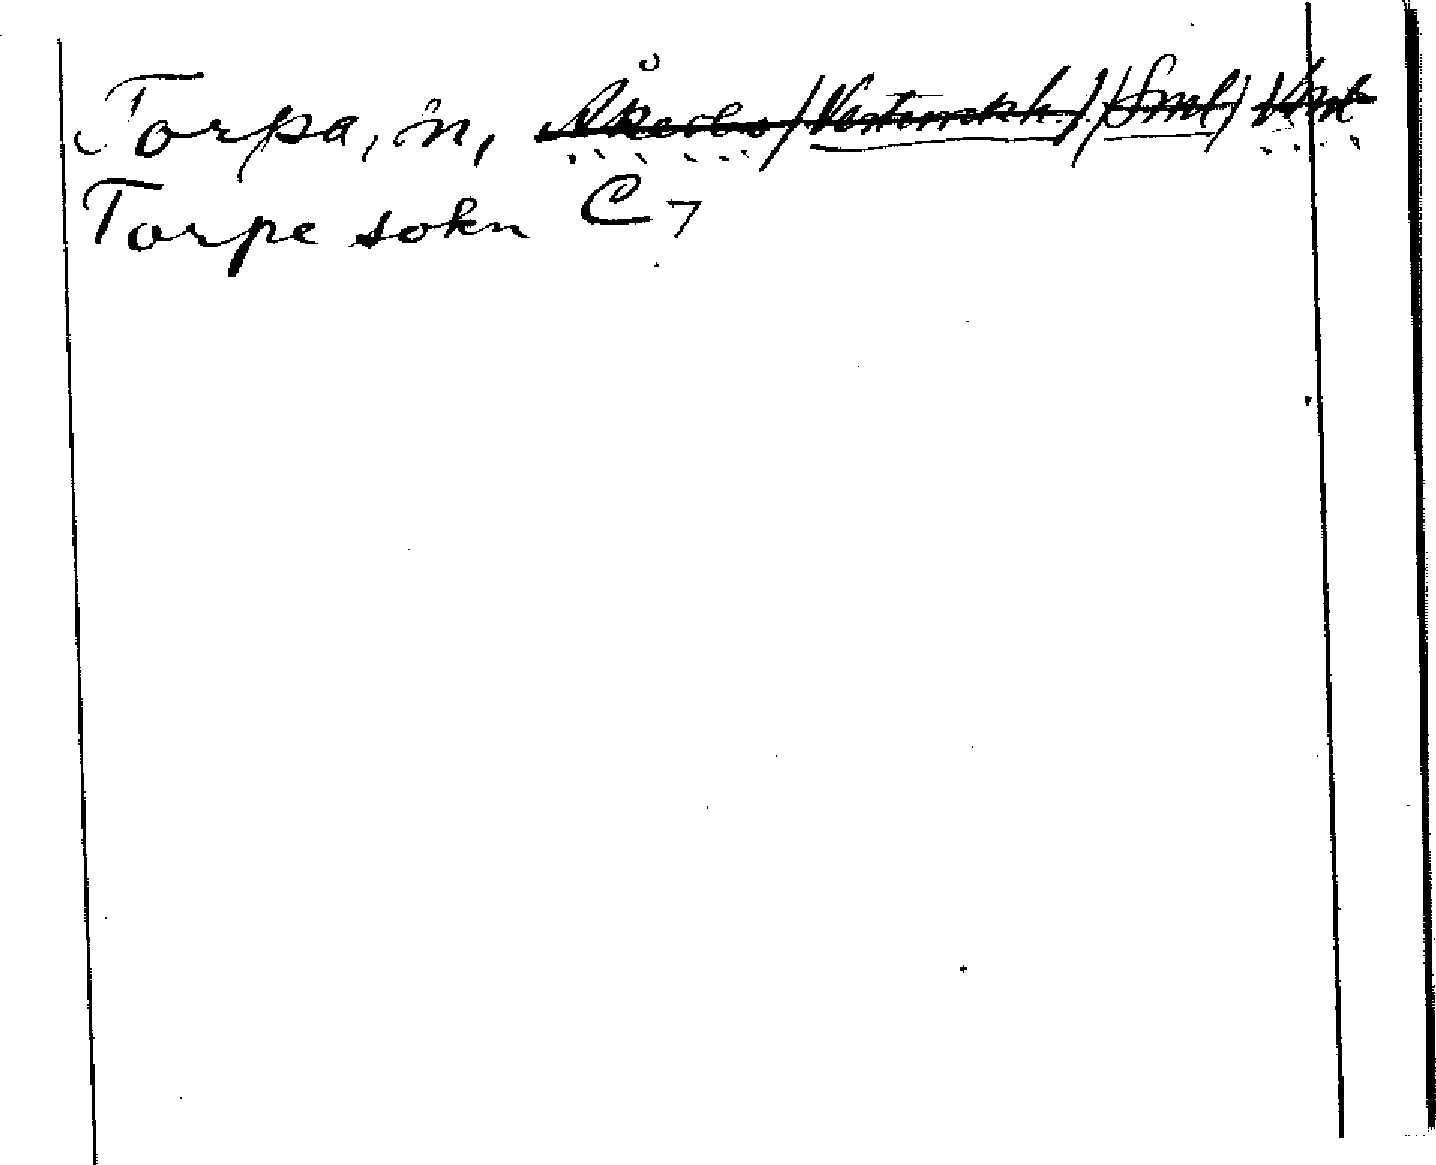 Torpa, n, Åkerbo / Västmanl. / (Sml)
Torpe sokn C 7